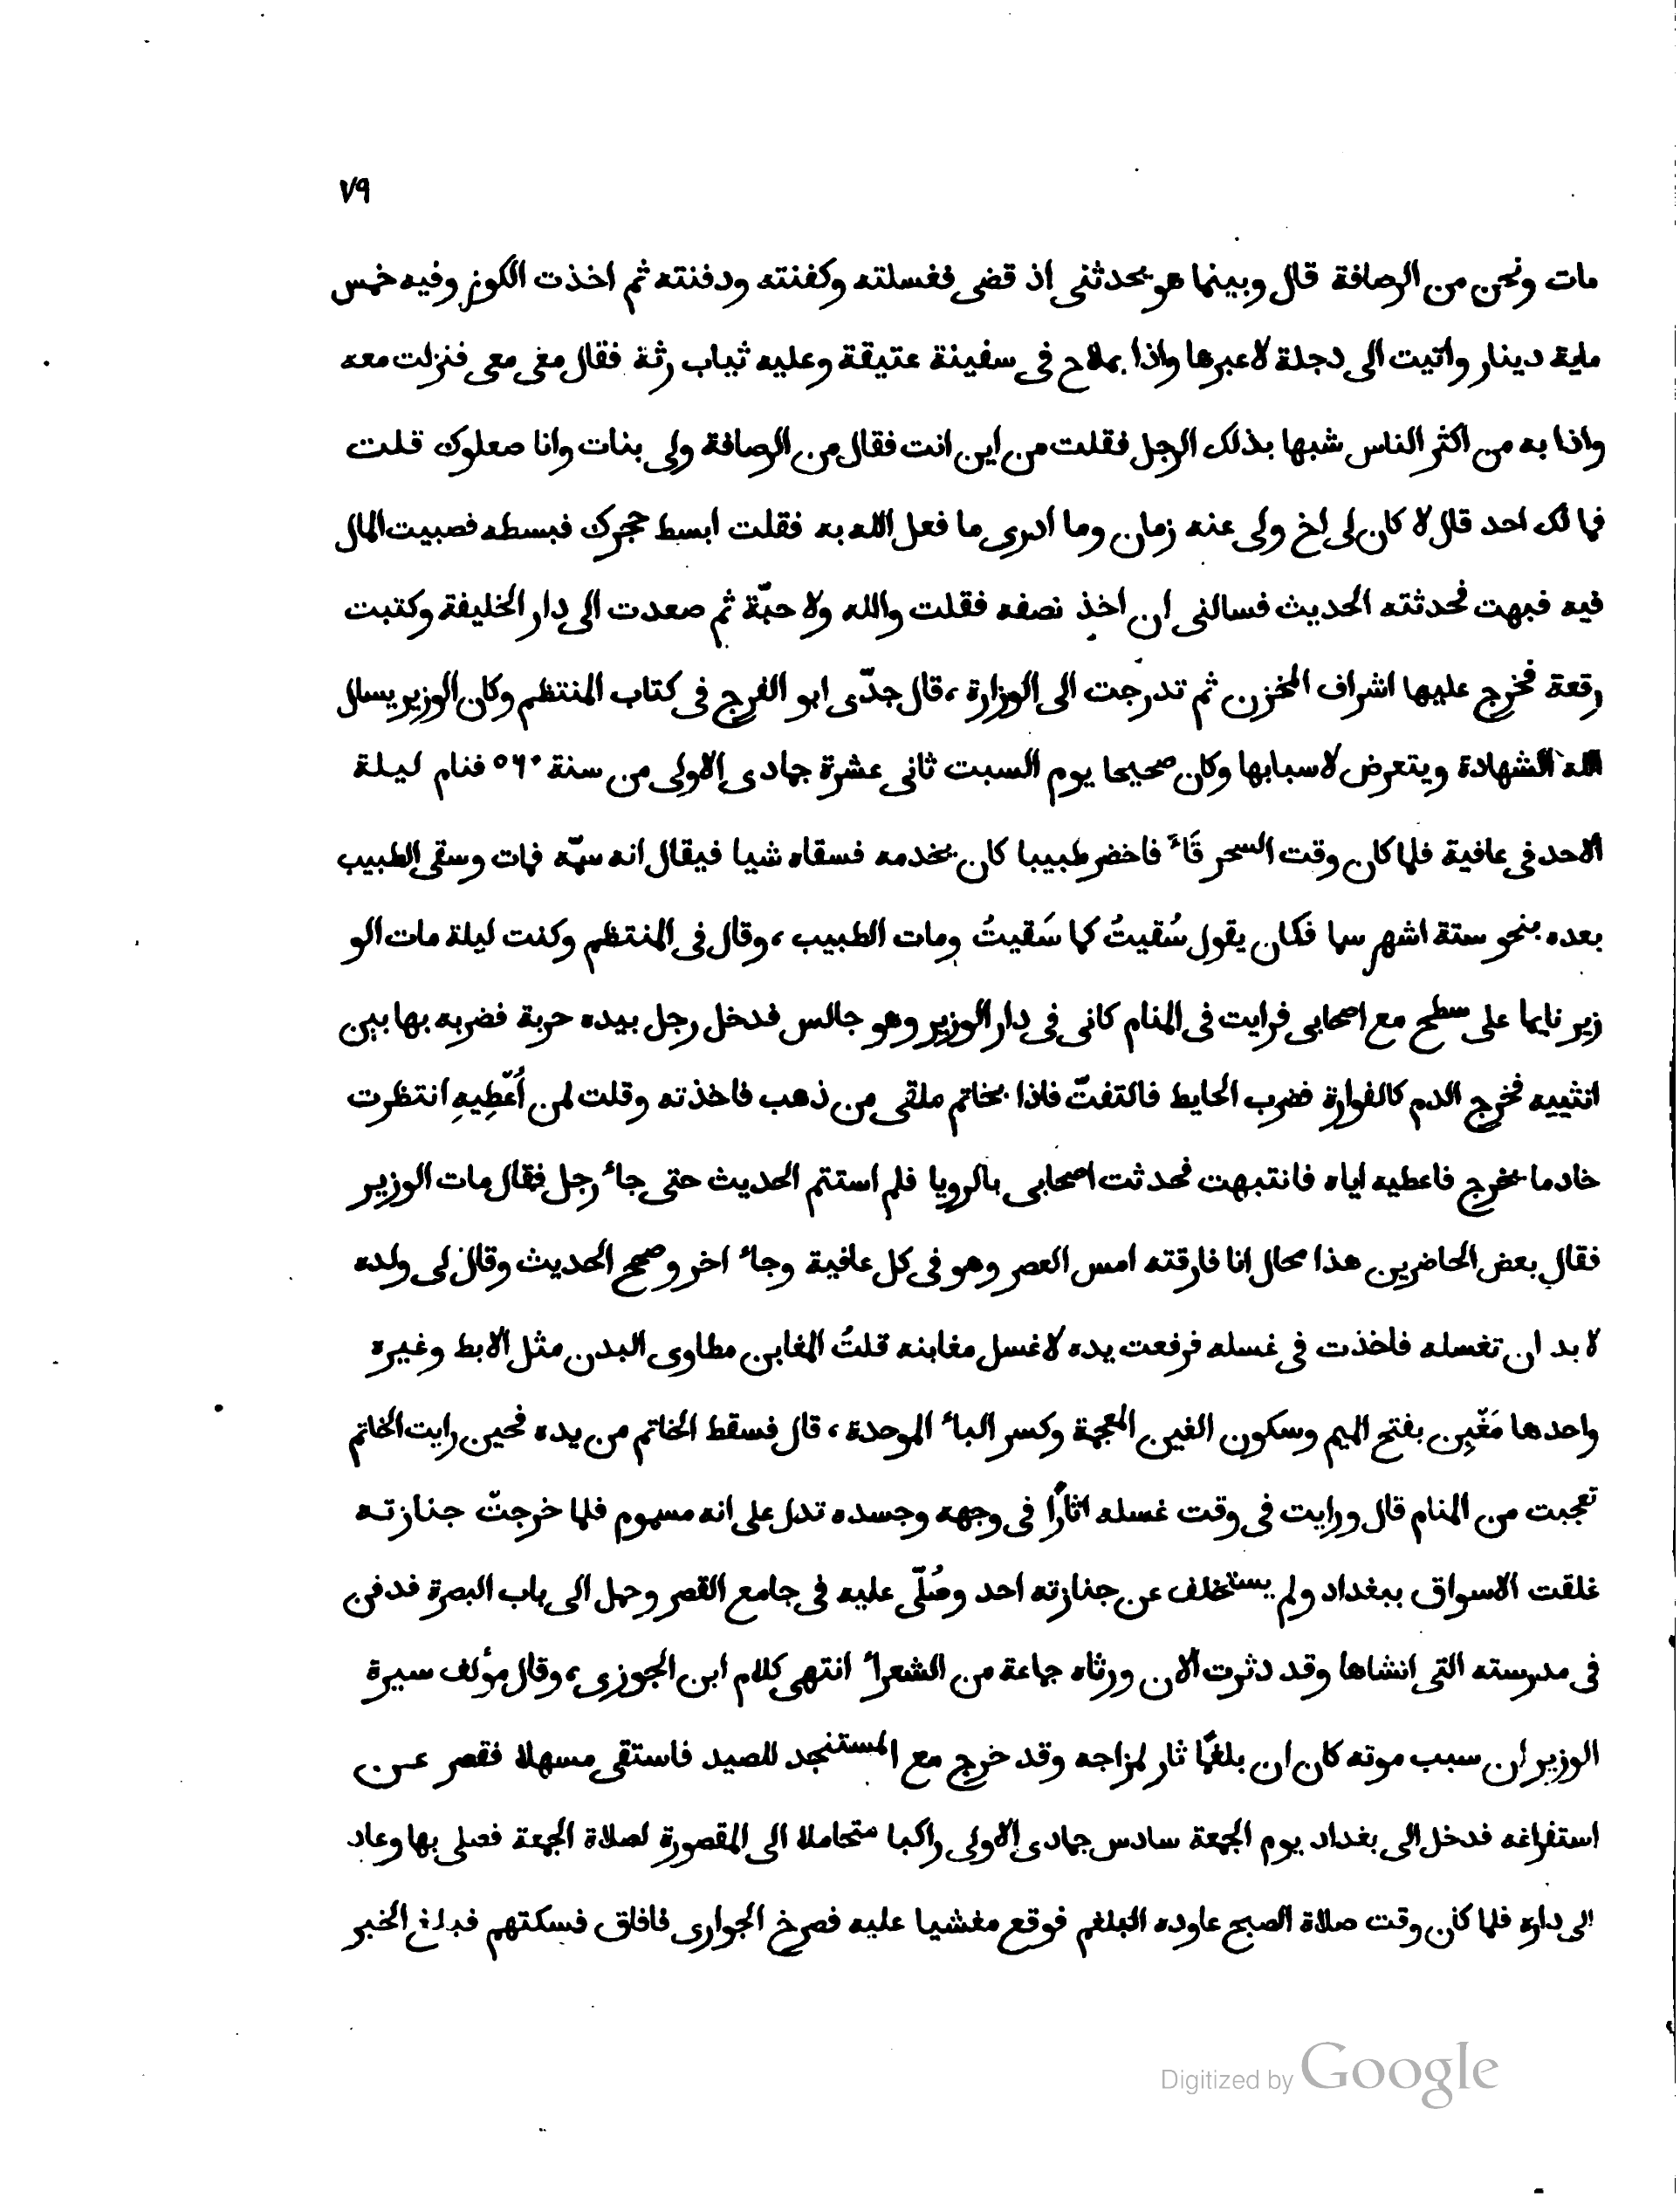 ٧٩
مات ونحن من الرصافة قال وبينما هو يحدثنى اذ قضى فغسلته وكفنته ودفنته ثم اخذت الكوز وفيه خمس
ماية دينار واتيت الى دجلة لاعبرها واذا بملاح فى سفينة عتيقة وعليه ثياب رثة فقال معى معى فنزلت معه
واذا به من اكثر الناس شبها بذلك الرجل فقلت من اين انت فقال من الرصافة ولى بنات وانا صعلوك قلت
فما لك احد قال لا كان لى اخ ولى عنه زمان وما ادرى ما فعل الله به فقلت ابسط حجرك فبسطه فصبيت المال
فيه فبهت فحدثته الحديث فسالنى ان اخذ نصفه فقلت والله ولا حبّة ثم صعدت الى دار الخليفة وكتبت
رقعة فخرج عليها اشراف المخزن ثم تدرجت الى الوزارة، قال جدّى ابو الفرج فى كتاب المنتظم وكان الوزير يسال
الله الشهادة ويتعرض لاسبابها وكان صحيحا يوم السبت ثانى عشرة جمادى الاولى من سنة ٥٦٠ فنام ليلة
الاحد فى عافية فلما كان وقت السحر قَاءَ فاحضر طبيبا كان يخدمه فسقاه شيا فيقال انه سمّه فمات وسقى الطبيب
بعده بنحو ستة اشهر سما فكان يقول سُقيتُ كما سَقيتُ ومات الطبيب، وقال فى المنتظم وكنت ليلة مات الو
زير نايما على سطح مع اصحابى فرايت فى المنام كانى فى دار الوزير وهو جالس فدخل رجل بيده حربة فضربه بها بين
انثييه فخرج الدم كالفوارة فضرب الحايط فالتفتّ فاذا بخاتم ملقى من ذهب فاخذته وقلت لمن أُعْطِيهِ انتظرت
خادما يخرج فاعطيه اياه فانتبهت فحدثت اصحابى بالرويا فلم استتم الحديث حتى جاء رجل فقال مات الوزير
فقال بعض الحاضرين هذا محال انا فارقته امس العصر وهو فى كل عافية وجاء اخر وصحح الحديث وقال لى ولده
لا بد ان تغسله فاخذت فى غسله فرفعت يده لاغسل مغابنه قلتُ المغابن مطاوى البدن مثل الابط وغيره
واحدها مَغْبِن بفتح الميم وسكون الغين المعجمة وكسر الباء الموحدة، قال فسقط الخاتم من يده فحين رايت الخاتم
تعجبت من المنام قال ورايت فى وقت غسله اثارًا فى وجهه وجسده تدل على انه مسموم فلما خرجتْ جنازته
غلقت الاسواق ببغداد ولم يستخلف عن جنازته احد وصُلّى عليه فى جامع القصر وحمل الى باب البصرة فدفن
فى مدرسته التى انشاها وقد دثرت الان ورثاه جماعة من الشعراء انتهى كلام ابن الجوزى، وقال مؤلف سيرة
الوزير ان سبب موته كان ان بلغمًا ثار لمزاجه وقد خرج مع المستنجد للصيد فاستقى مسهلا فقصر عن
استفراغه فدخل الى بغداد يوم الجمعة سادس جمادى الاولى راكبا متحاملا الى المقصورة لصلاة الجمعة فصلى بها وعاد
الى داره فلما كان وقت صلاة الصبح عاوده البلغم فوقع مغشيا عليه فصرخ الجوارى فافاق فسكتهم فبلغ الخبر
Digitized by Google